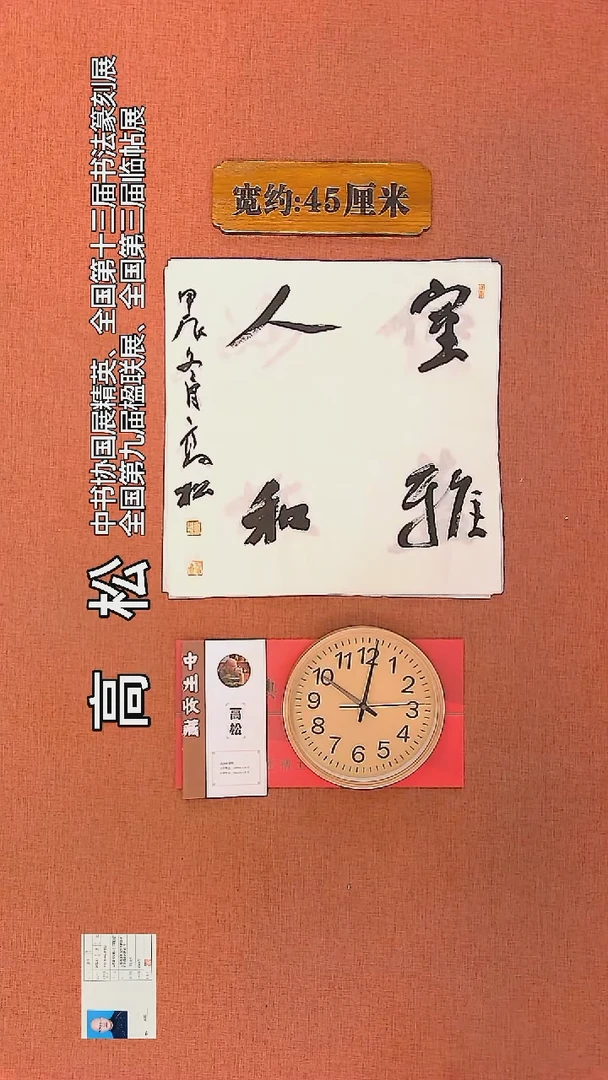 高松
中书协国展精英、全国第十三届书法篆刻展
全国第九届楹联展、全国第三届临帖展
宽约:45厘米
室雅
人和
甲辰冬月高松
高松
12
1
2
3
4
5
6
7
8
9
10
11